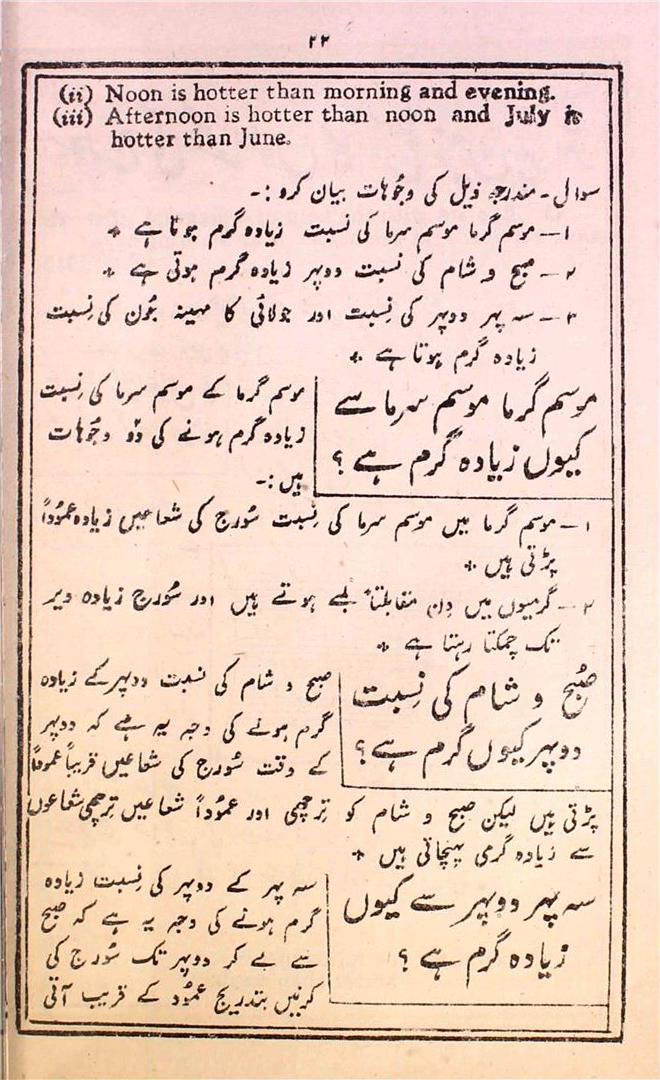 ۲۲
(ii) Noon is hotter than morning and evening.
(iii) Afternoon is hotter than noon and July is
hotter than June.
سوال۔ مندرجہ ذیل کی وجُوہات بیان کرو :۔
۱۔ موسم گرما موسم سرما کی نسبت زیادہ گرم ہوتا ہے ٭
۲۔ صبح و شام کی نسبت دوپہر زیادہ گرم ہوتی ہے ٭
۳۔ سہ پہر دوپہر کی نِسبت اور جولائی کا مہینہ جُون کی نِسبت
زیادہ گرم ہوتا ہے ٭
موسم گرما موسم سرما سے
کیوں زیادہ گرم ہے ؟
موسم گرما کے موسم سرما کی نِسبت
زیادہ گرم ہونے کی دو وجُوہات
ہیں :۔
۱۔ موسم گرما میں موسم سرما کی نِسبت سُورج کی شعاعیں زیادہ عمُوداً
پڑتی ہیں ٭
۲۔ گرمیوں میں دِن مقابلتاً لمبے ہوتے ہیں اور سُورج زیادہ دیر
تک چمکتا رہتا ہے ٭
صُبح و شام کی نِسبت
دوپہر کیوں گرم ہے ؟
صبح و شام کی نسبت دوپہر کے زیادہ
گرم ہونے کی وجہ یہ ہے کہ دوپہر
کے وقت سُورج کی شعاعیں قریباً عموداً
پڑتی ہیں لیکن صبح و شام کو تِرچھی اور عمُوداً شعاعیں تِرچھی شعاعوں
سے زیادہ گرمی پہنچاتی ہیں ٭
سہ پہر دوپہر سے کیوں
زیادہ گرم ہے ؟
سہ پہر کے دوپہر کی نِسبت زیادہ
گرم ہونے کی وجہ یہ ہے کہ صبح
سے لے کر دوپہر تک سُورج کی
کرنیں بتدریج عمُود کے قریب آتی